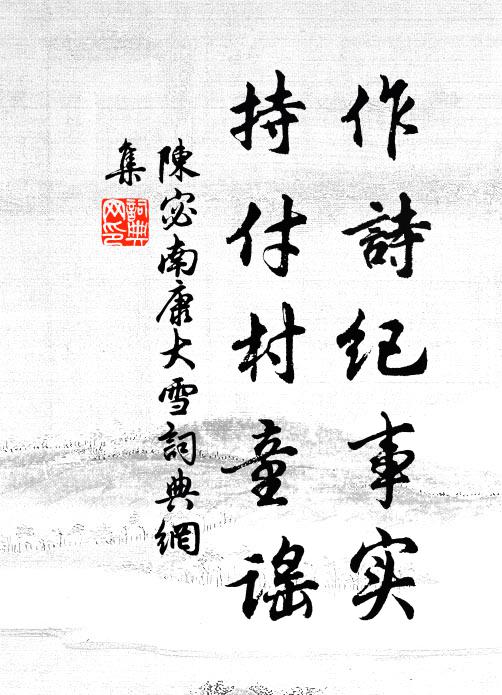 作詩纪事实
持付村童谣
陳宓南康大雪詞典網
集
詞典网印